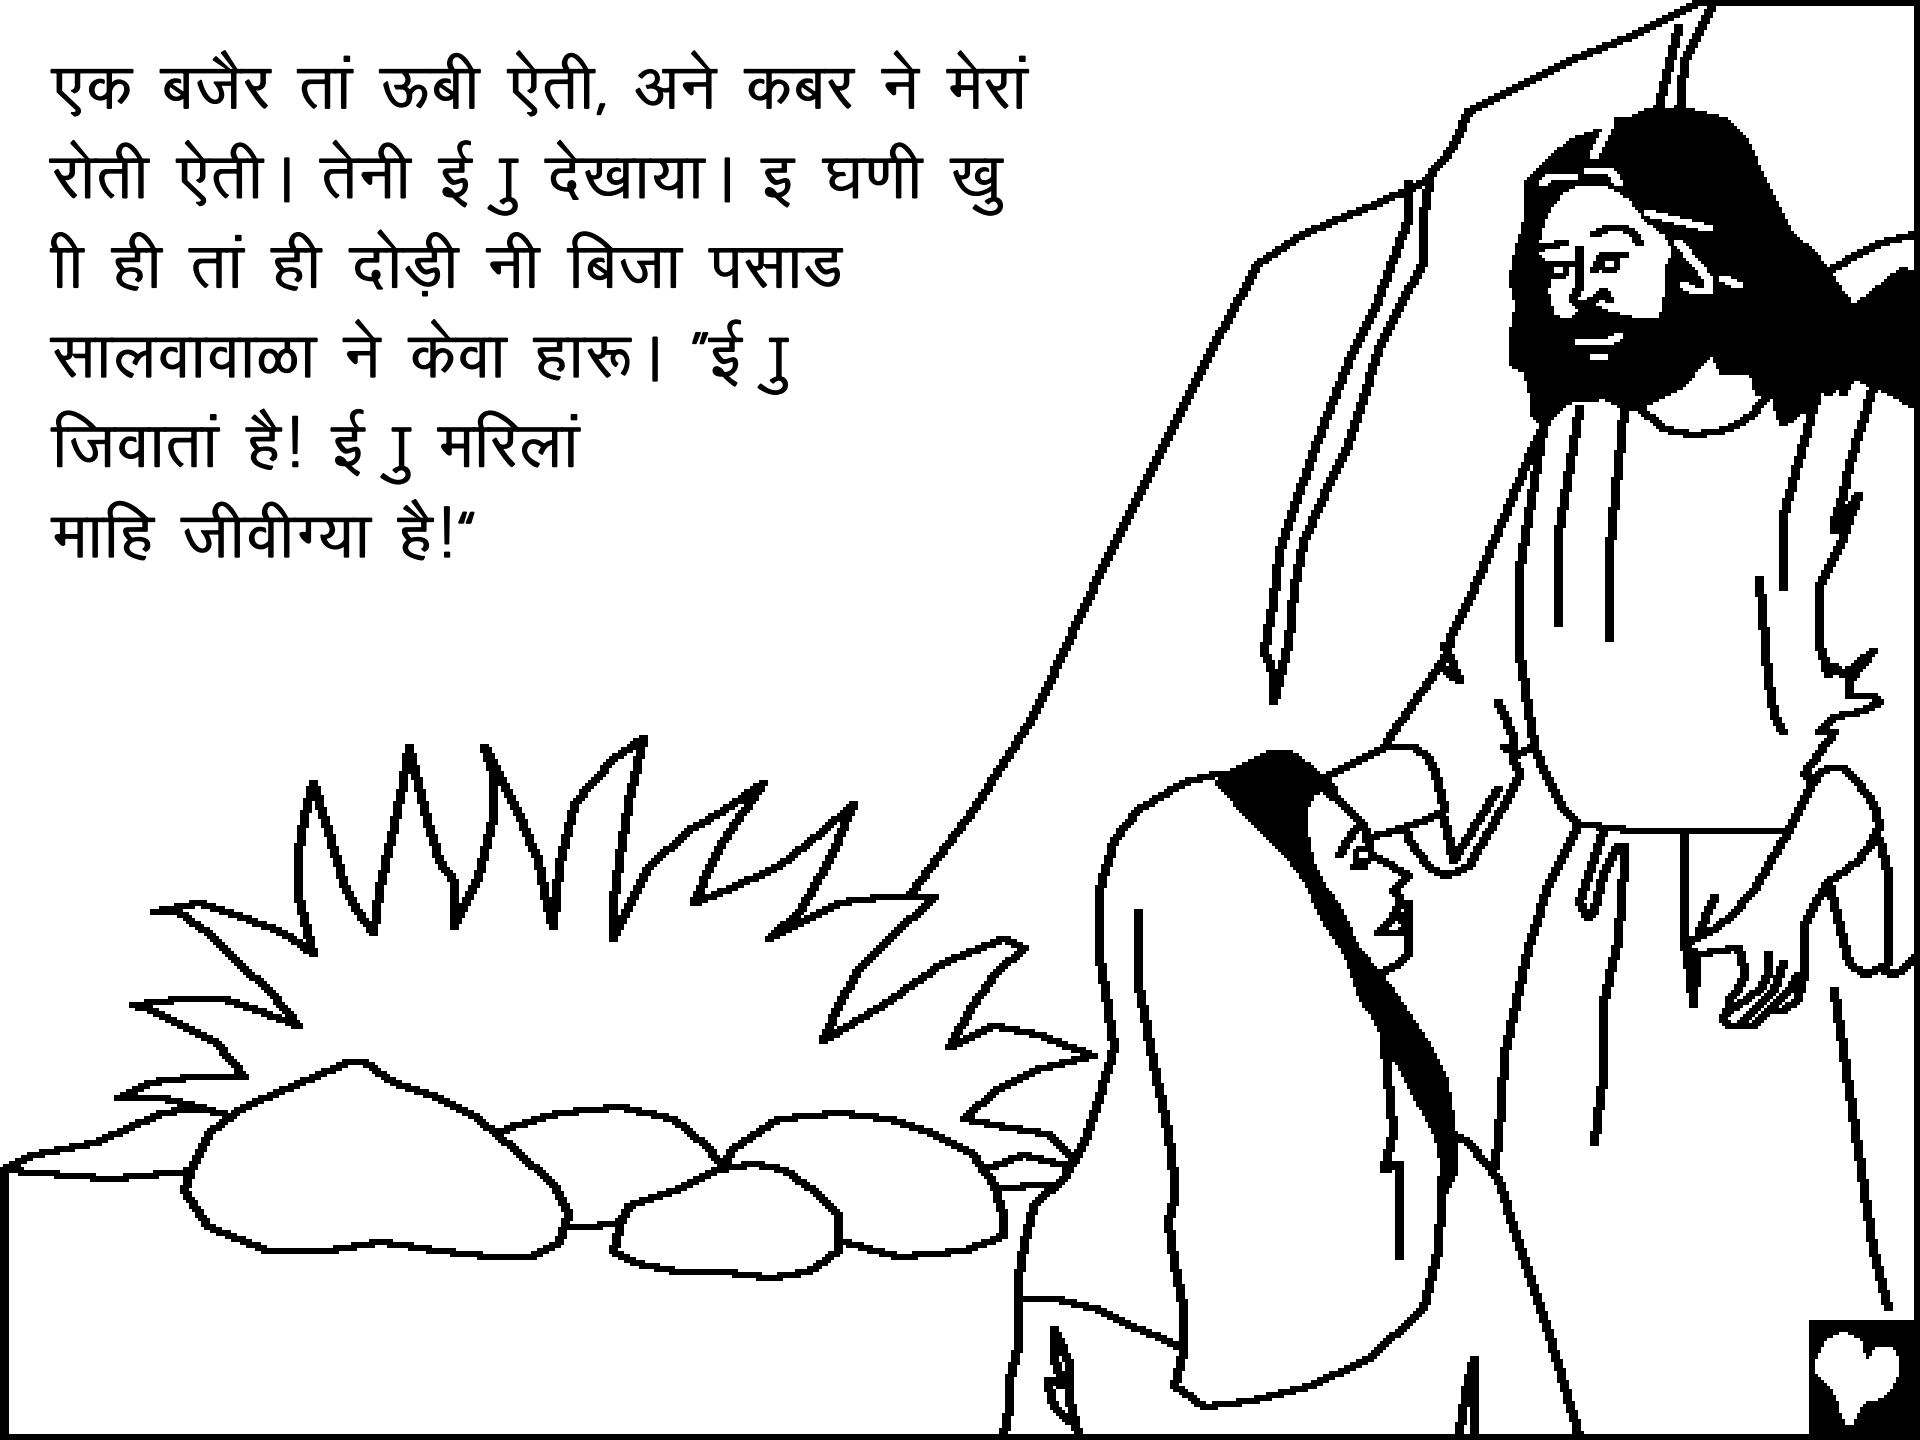 एक बजैर तां ऊबी ऐती, अने कबर ने मेरां
रोती ऐती। तेनी ई ु देखाया। इ घणी खु
ाी ही तां ही दोड़ी नी बिजा पसाड
सालवावाळा ने केवा हारू। "ई ु
जिवातां है! ई ु मरिलां
माहि जीवीग्या है!"